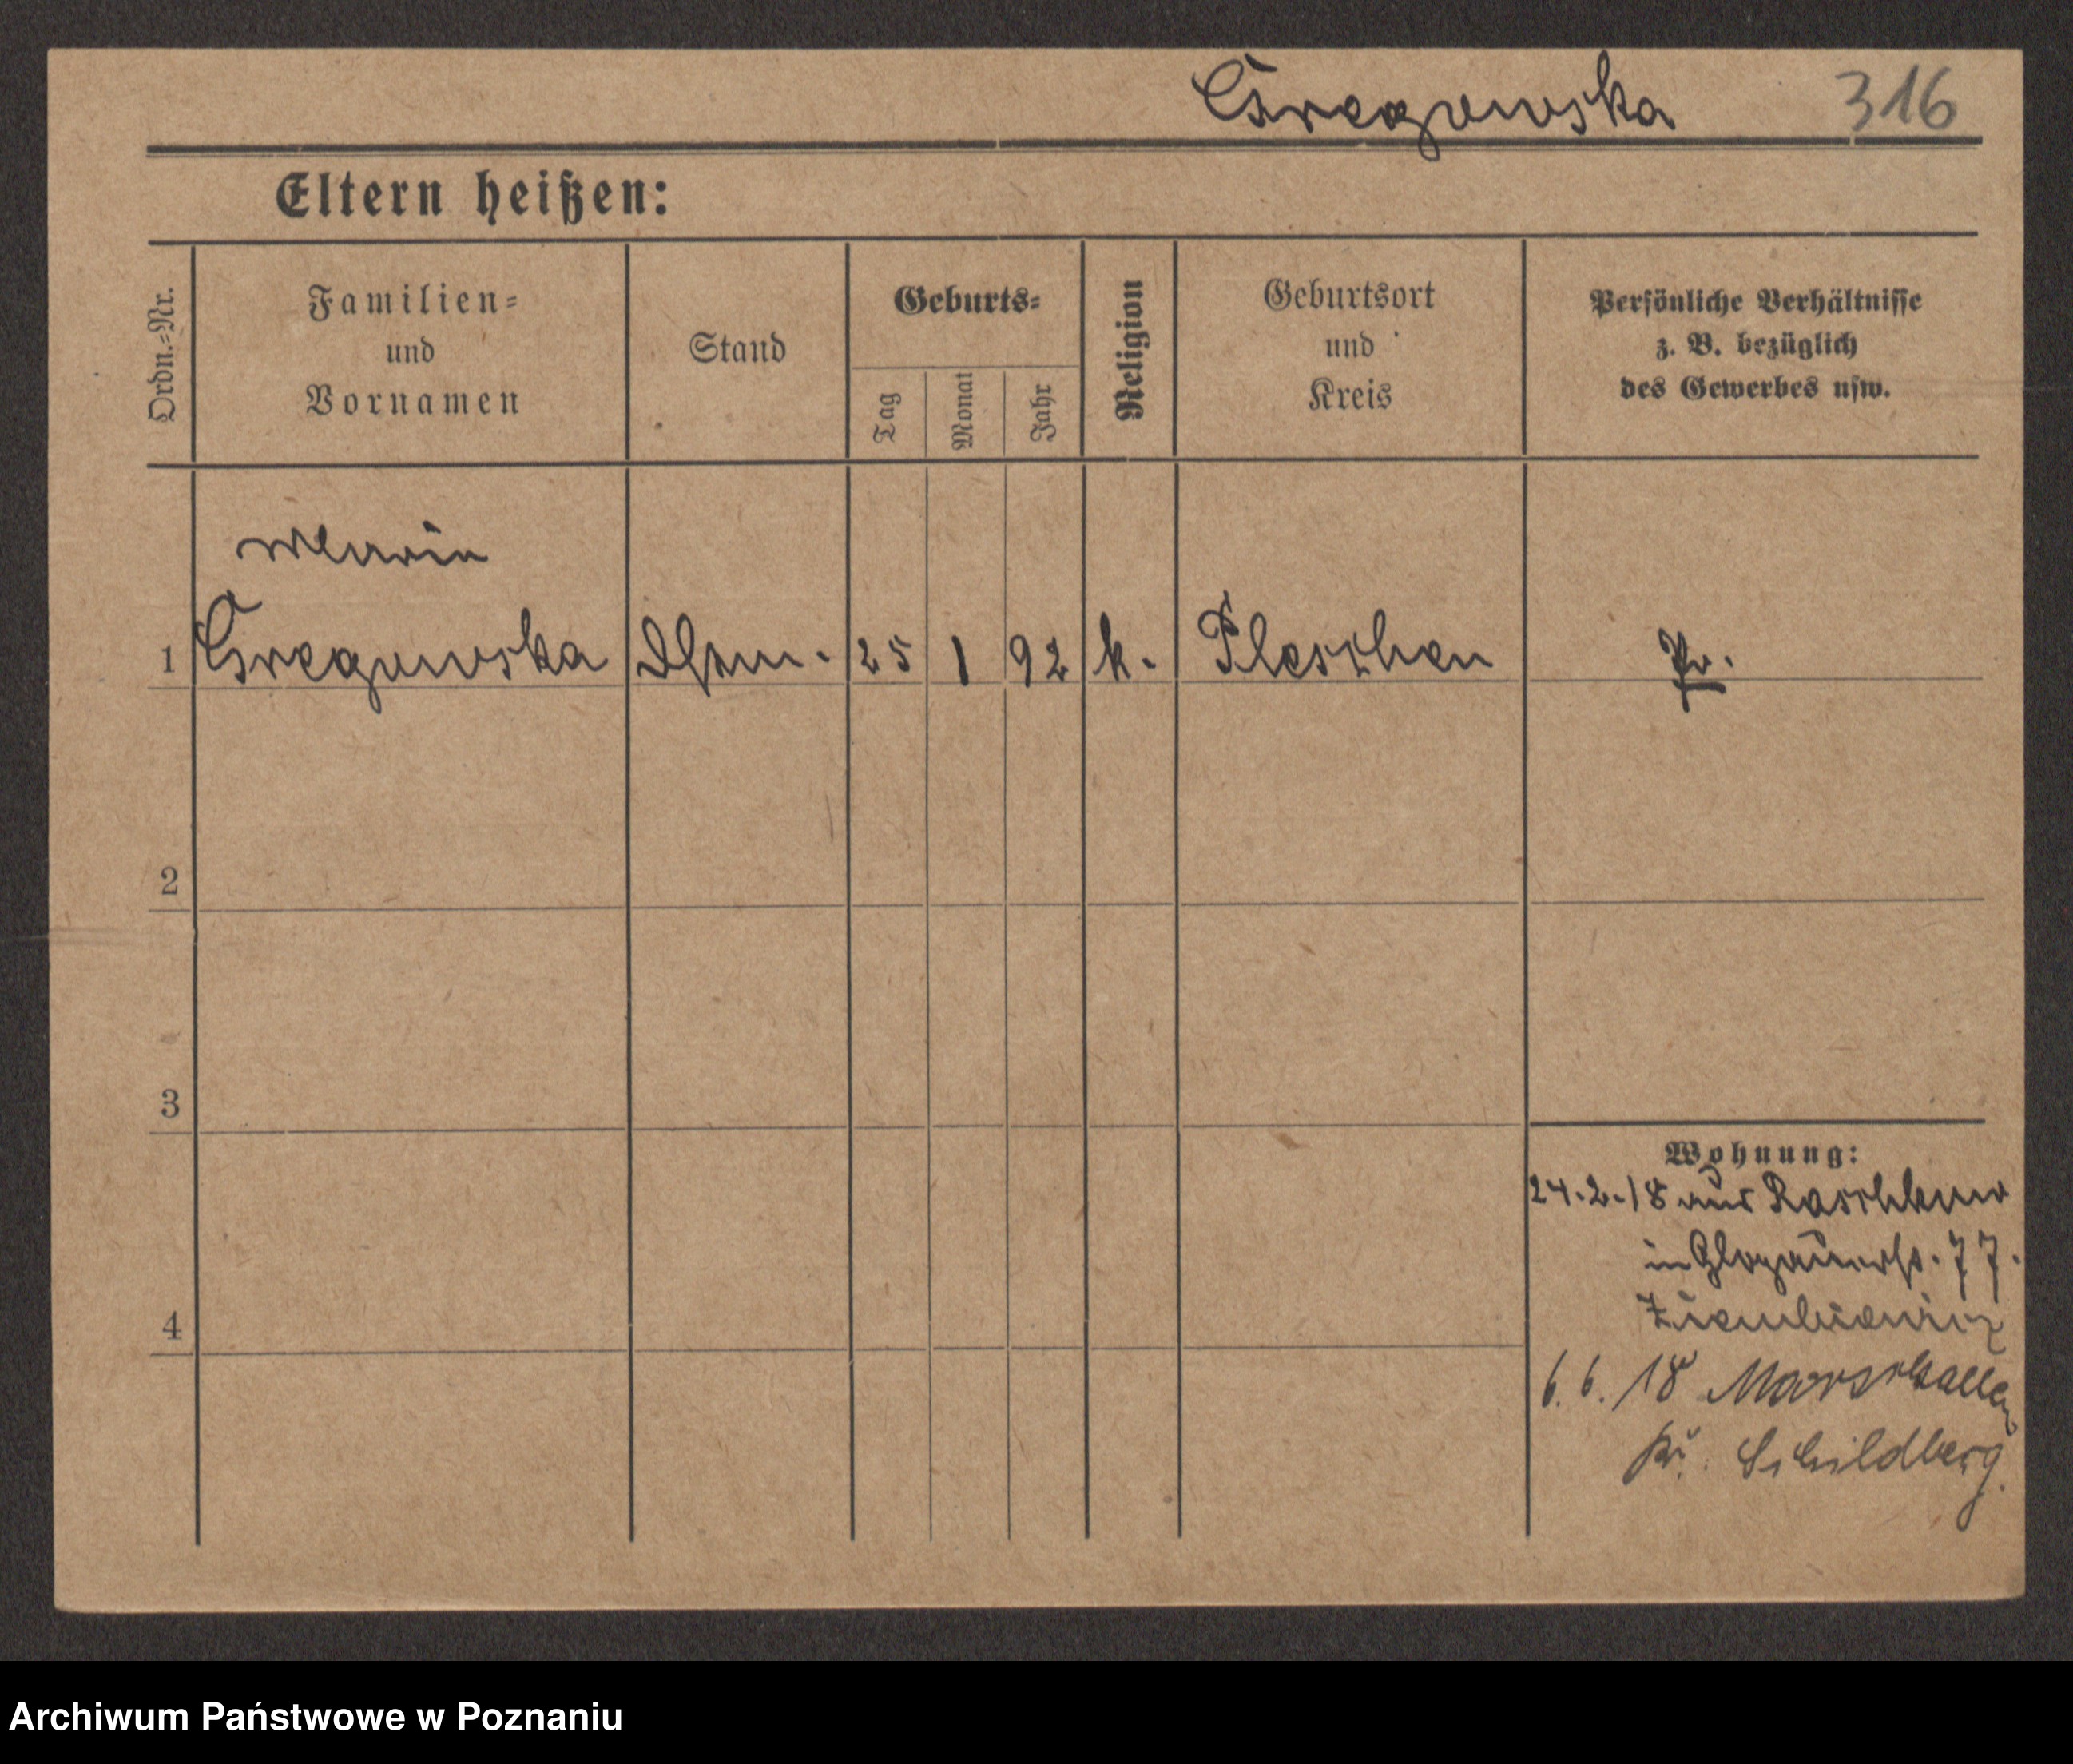 Gregowska 316
Eltern heißen:
Ordn.=Nr.
Familien=
und
Vornamen
Stand
Geburts=
Tag
Monat
Jahr
Religion
Geburtsort
und
Kreis
Persönliche Verhältnisse
z. B. bezüglich
des Gewerbes usw.
Maria
1 Gregowska 25 1 92 k. Pleschen Pr.
2
3
4
Wohnung:
24.2.18 aus Raschkow
in Glogauerstr. 77.
6.6.18 Marschallen
Kr. Schildberg.
Archiwum Państwowe w Poznaniu